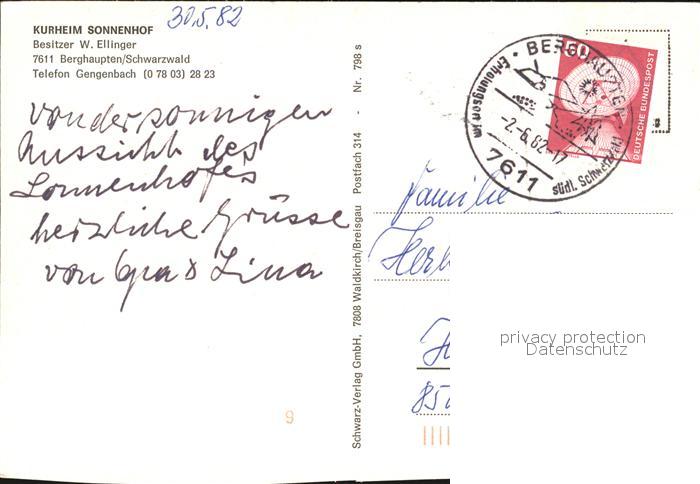 30.5.82
KURHEIM SONNENHOF
Besitzer W. Ellinger
7611 Berghaupten/Schwarzwald
Telefon Gengenbach (0 78 03) 28 23
von der sonnigen
Aussicht des
Sonnenhofes
herzliche Grüsse
von Opa & Lina
9
Schwarz-Verlag GmbH, 7808 Waldkirch/Breisgau Postfach 314 - Nr. 798 s
BERGHAUPTEN
Erholungsort im
südl. Schwarz
-2.-6.82-17
7611
50
DEUTSCHE BUNDESPOST
Familie
Her
85
privacy protection
Datenschutz